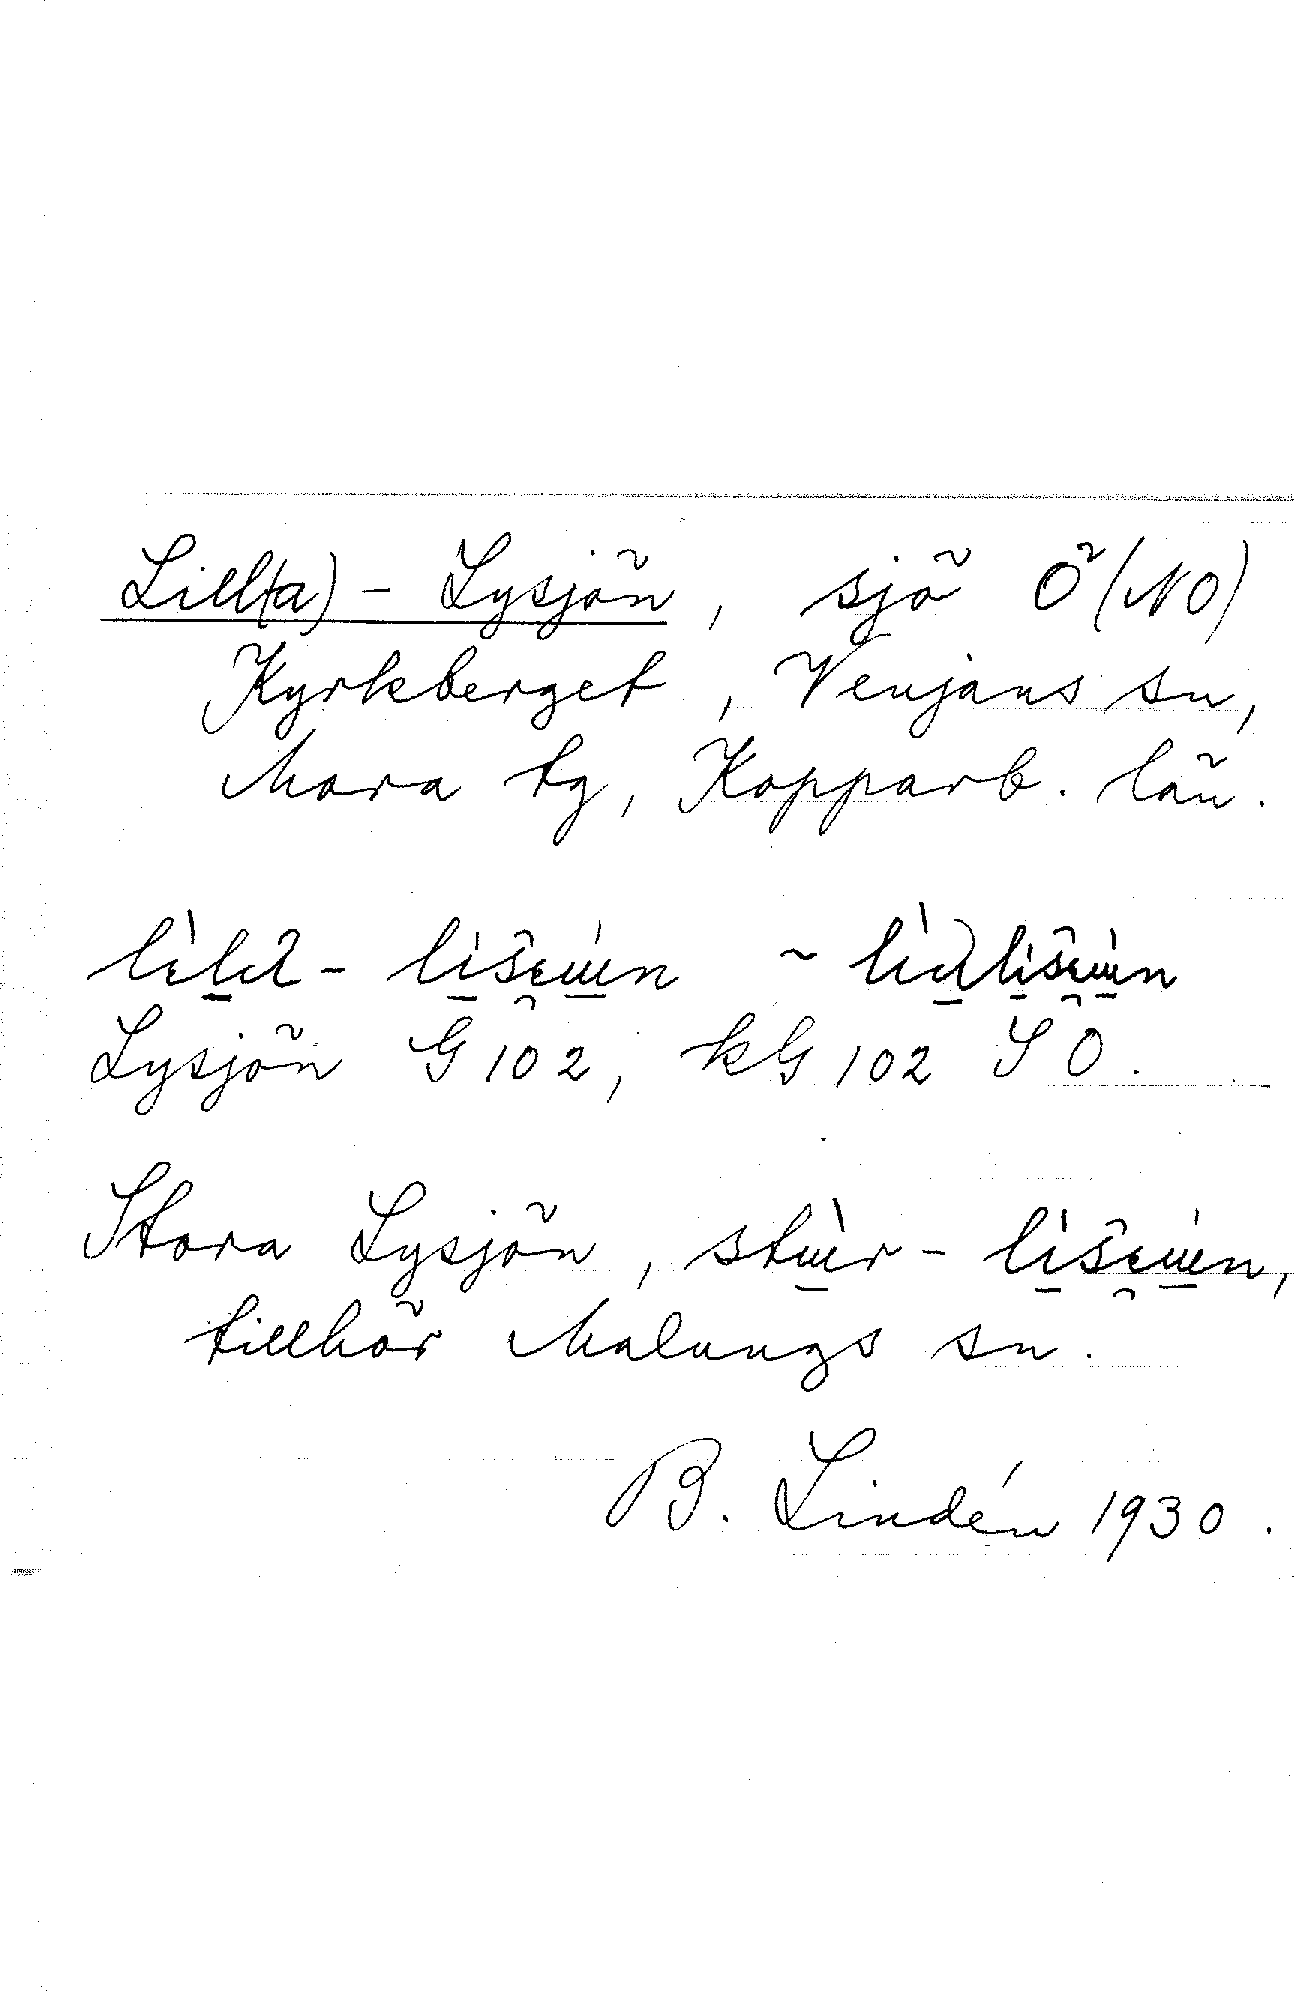 Lill(a)-Lysjön, sjö Ö (NO)
Kyrkberget, Venjans sn,
Mora tg, Kopparb. län.
Lysjön G 102, kG 102 SO.
Stora Lysjön,
tillhör Malungs sn.
B. Lindén 1930.